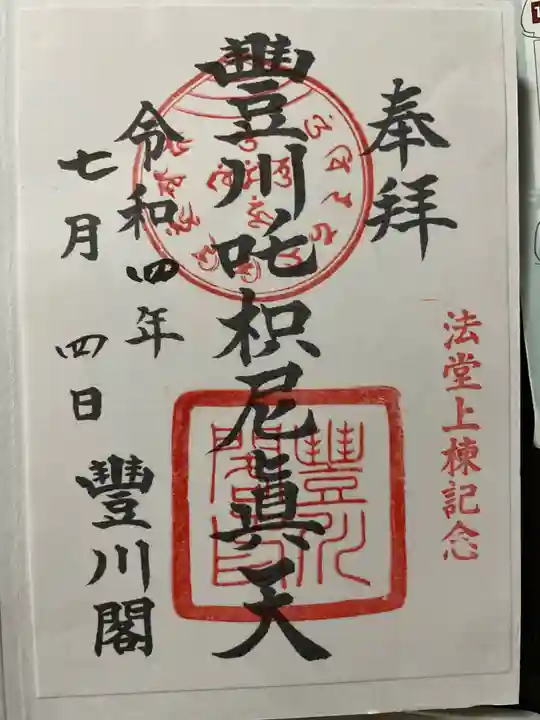 奉拝
法堂上棟記念
豐川吒枳尼眞天
令和四年
七月四日
豐川閣
豐川閣印